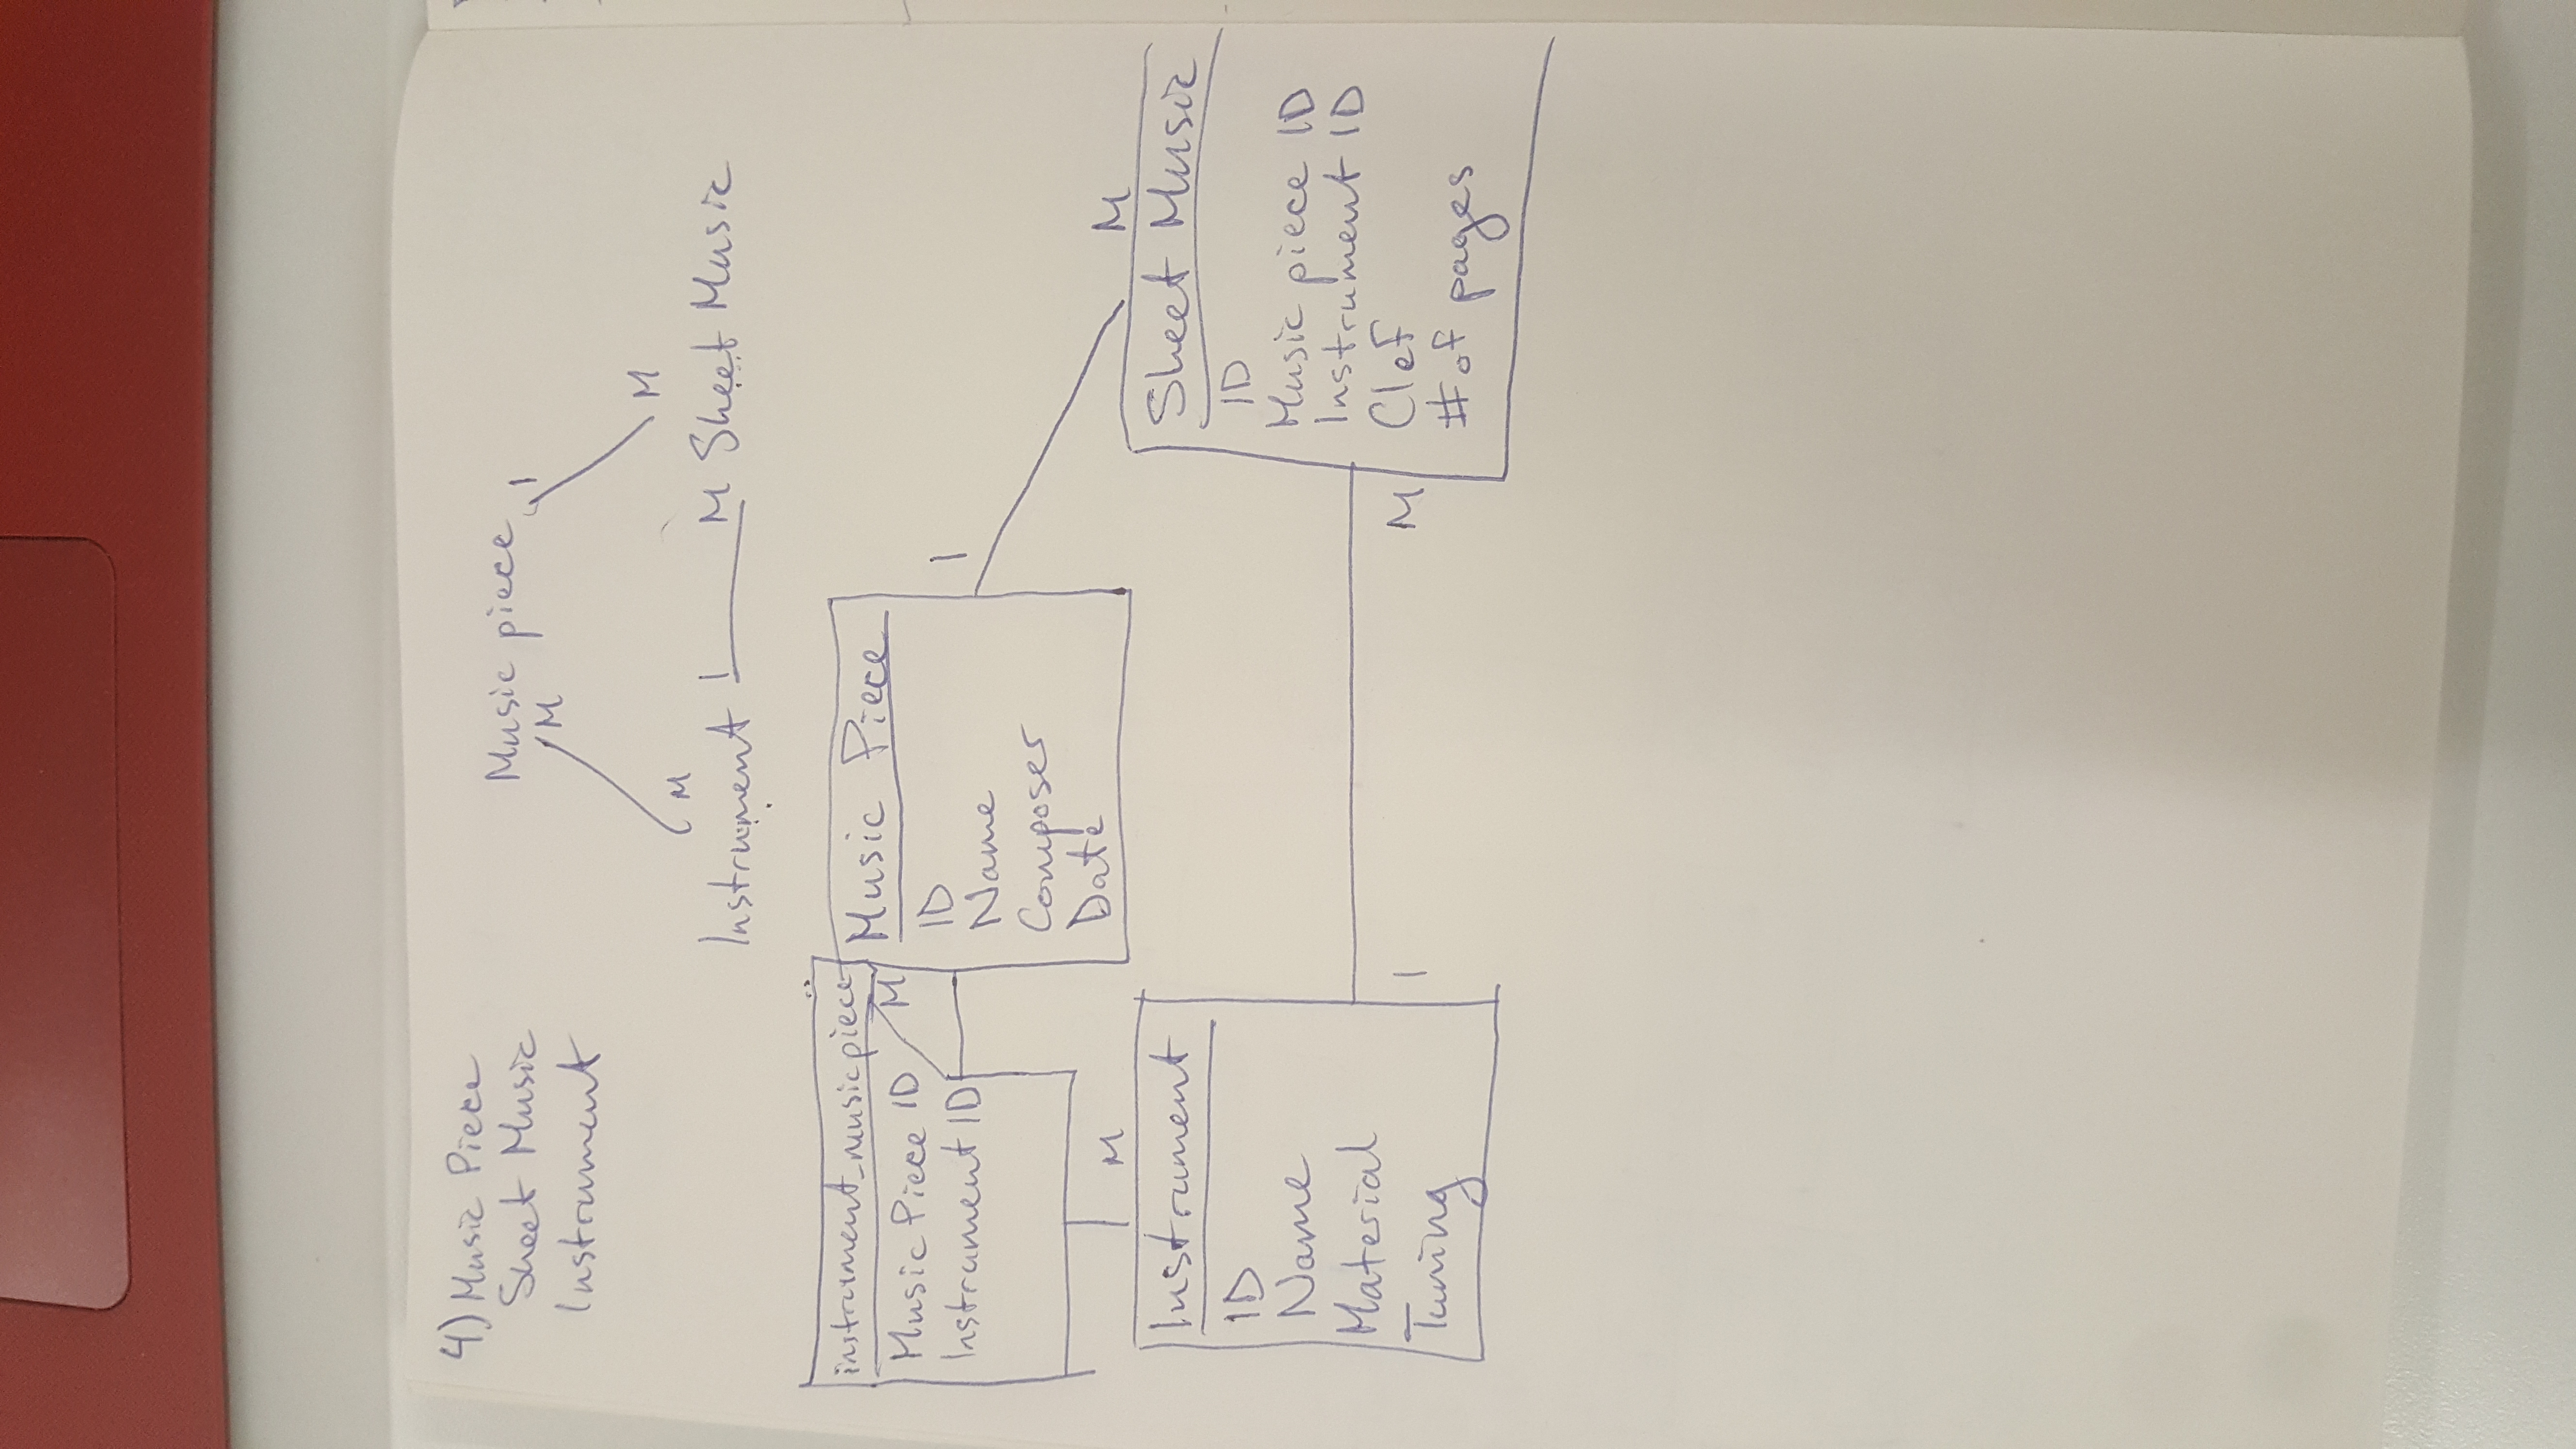 4) Music Piece
Sheet Music
Instrument
Music piece
1
M
M
M
Instrument 1 M Sheet Music
instrument_musicpiece
Music Piece ID
Instrument ID
M
M
Music Piece
ID
Name
Composer
Date
1
M
Instrument
ID
Name
Material
Tuning
1
M
Sheet Music
ID
Music piece ID
Instrument ID
Clef
# of pages